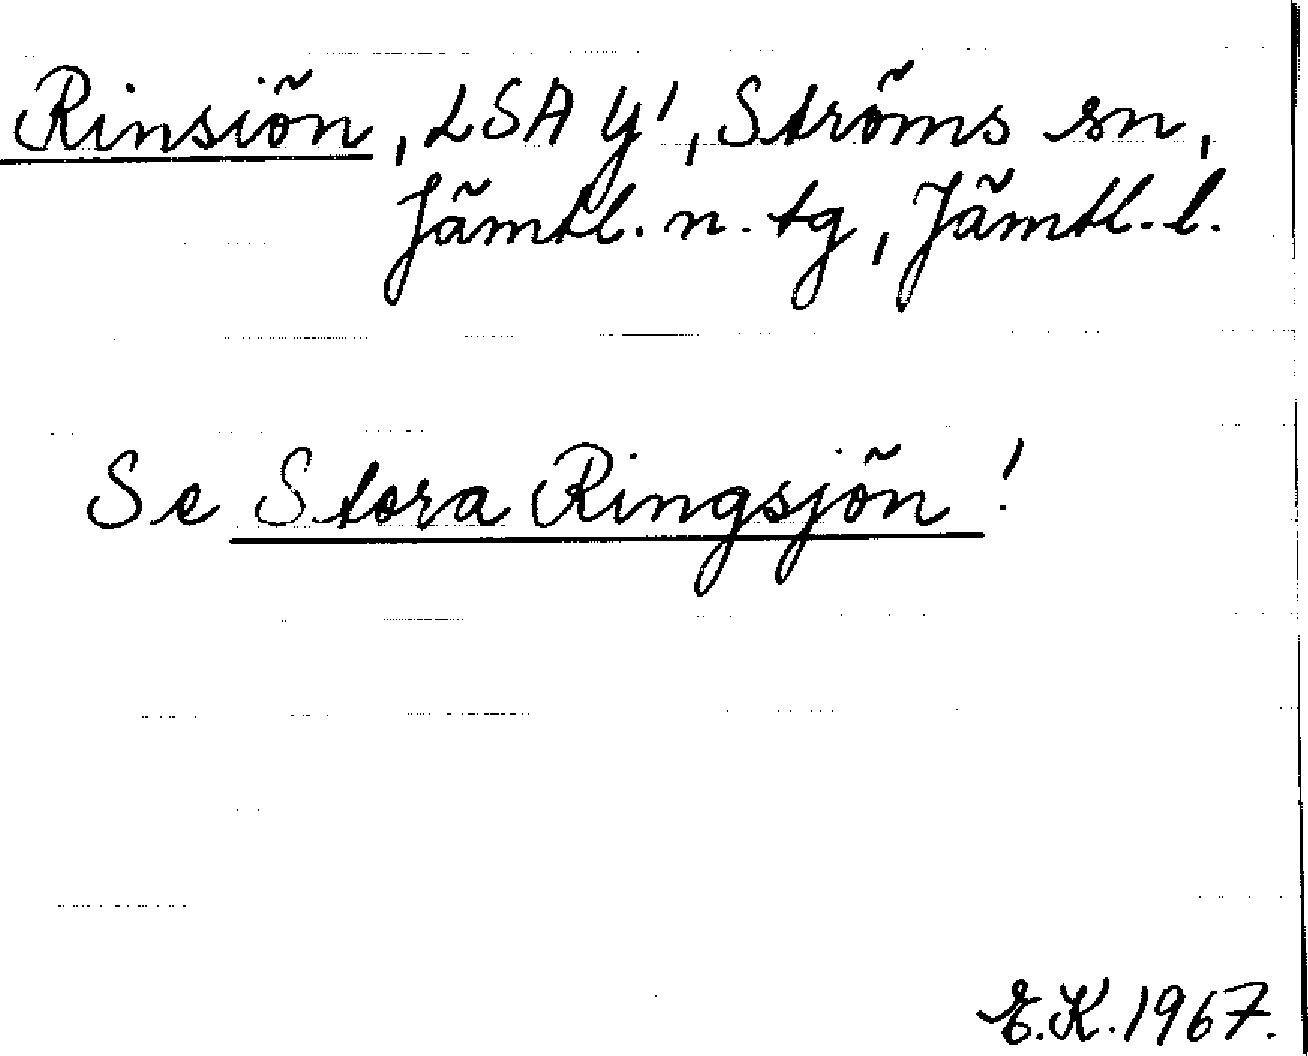 Rinsiön, LSA y', Ströms sn,
Jämtl. n. tg, Jämtl. l.
Se Stora Ringsjön!
E.K. 1967.